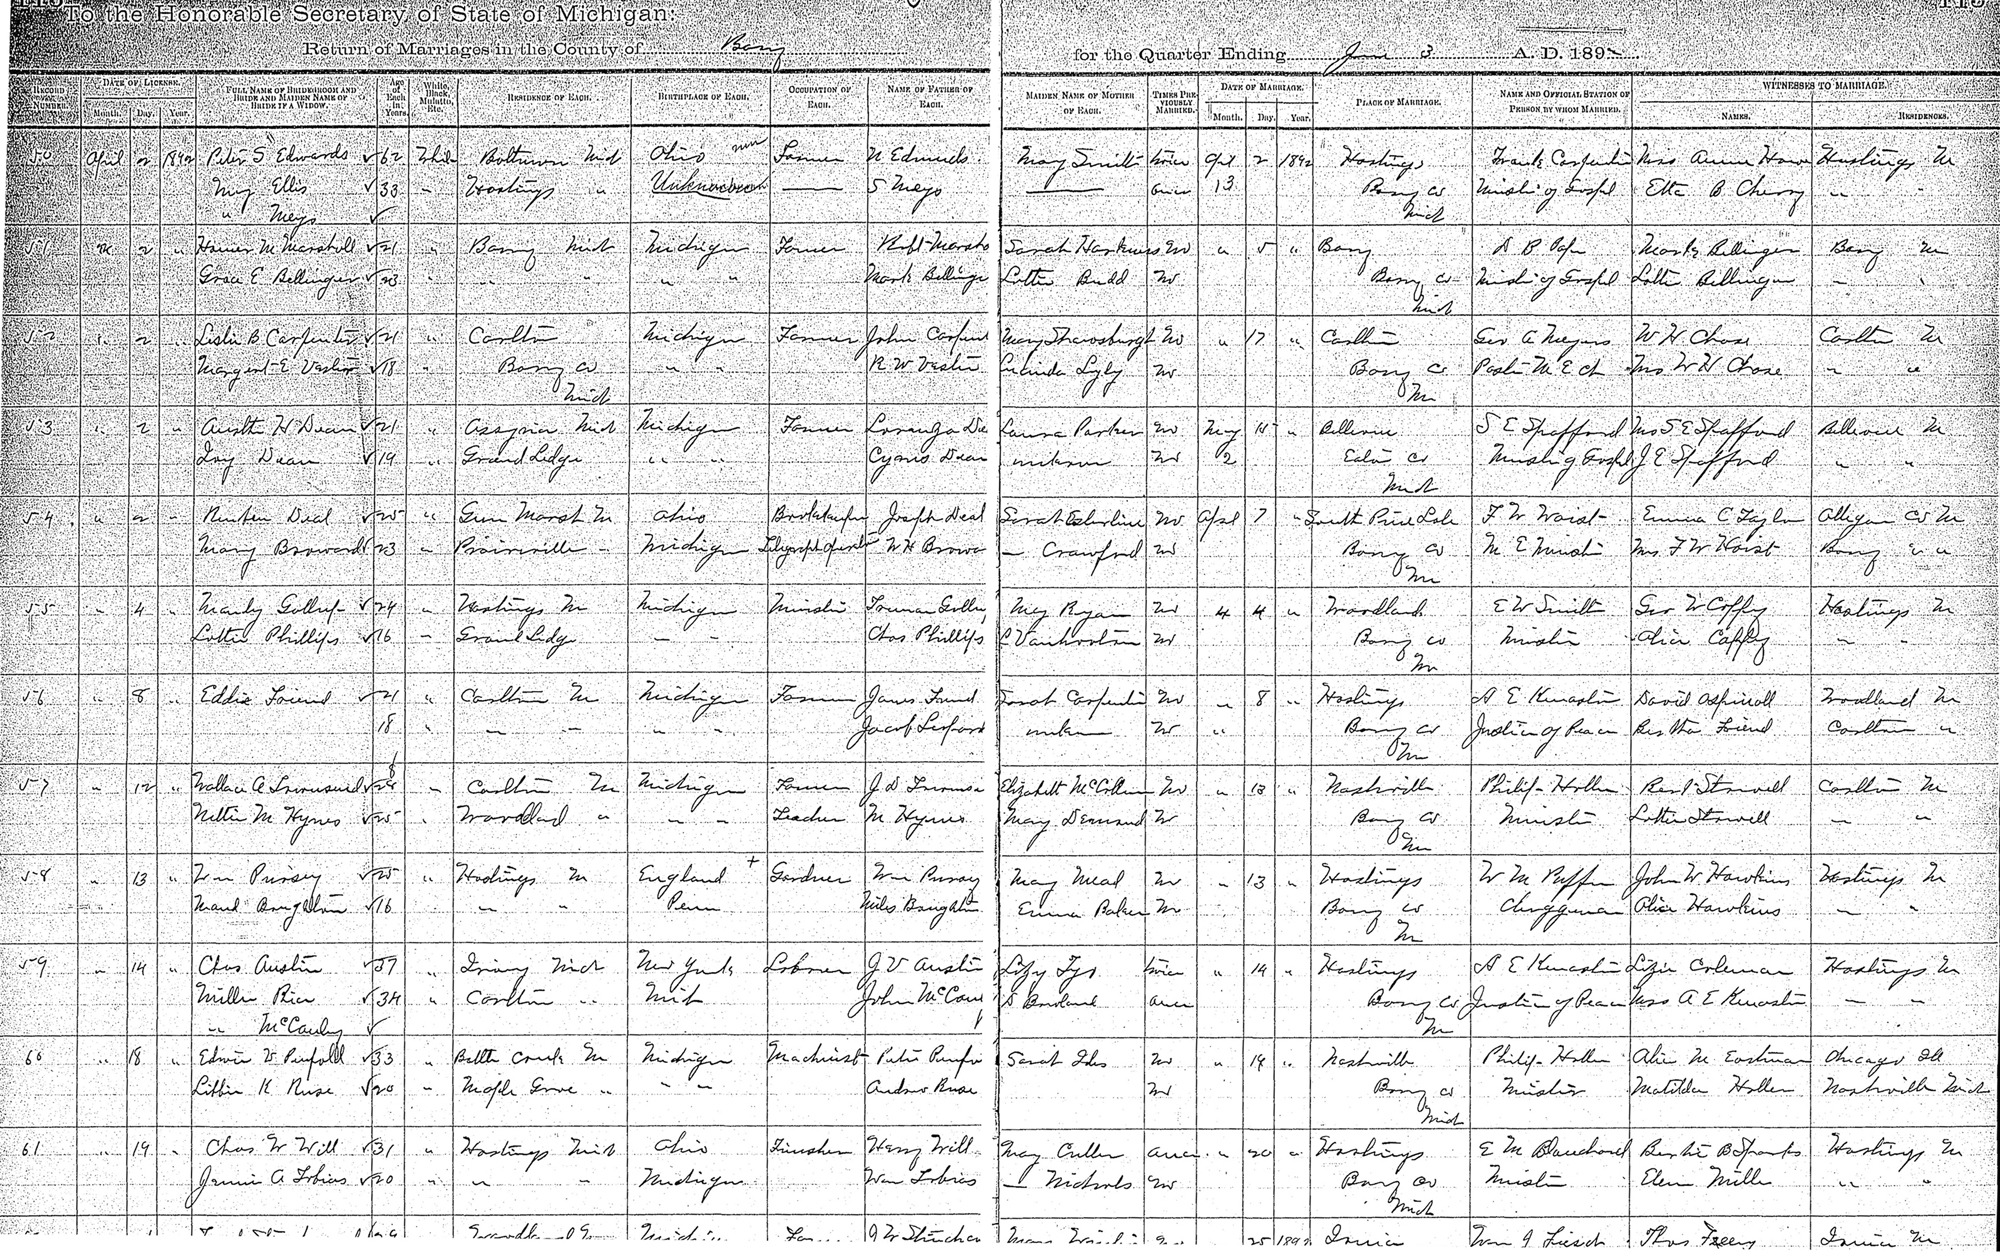 To the Honorable Secretary of State of Michigan:
Return of Marriages in the County of Barry for the Quarter Ending June 3 A. D. 189
RECORD NUMBER. DATE OF LICENSE. Month. Day. Year. FULL NAME OF BRIDEGROOM AND BRIDE AND MAIDEN NAME OF BRIDE IF A WIDOW. Age of Each in Years. White, Black, Mulatto, Etc. RESIDENCE OF EACH. BIRTHPLACE OF EACH. OCCUPATION OF EACH. NAME OF FATHER OF EACH. MAIDEN NAME OF MOTHER OF EACH. TIMES PREVIOUSLY MARRIED. DATE OF MARRIAGE. Month. Day. Year. PLACE OF MARRIAGE. NAME AND OFFICIAL STATION OF PERSON BY WHOM MARRIED. WITNESSES TO MARRIAGE. NAMES. RESIDENCES.
50 April 2 1892 Peter S Edwards 62 White Mich Ohio Farmer Edmuds May Smith twice Apl 2 1892 Hastings Frank Carpenter Miss Anna Howe Hastings M
May Ellis 33 " Hastings " Unknown S Mayo once 13 Barry Co Minister of Gospel Etta B Cherry " "
" Mayo Mich
51 " 2 " Homer M Marshall 21 " Barry Mich Michigan Farmer Robt Marsha Sarah No " 5 " Barry Mark Bellinger Barry M
Grace E Bellinger 23 " " " " " Mark Bellinge Lottie Budd No Barry Co Minister of Gospel Lottie Bellinger " "
Mich
52 " 2 " Leslie B Carpenter 21 " Carlton Michigan Farmer John Carpent No " 17 " Carlton Geo A Meyers W H Chase Carlton M
Margaret E 18 " Barry Co " " R W No Barry Co Pastor M E Ch Mrs W H Chase " "
Mich M
53 " 2 " Austin H Dean 21 " Assyria Mich Michigan Farmer Lorenzo De Laura Parker No May 15 " Bellevue S E Spafford Mrs S E Spafford Bellevue M
Ivy Dean 19 " Grand Ledge " " Cyrus Dean unknown No 2 Eaton Co Minister of Gospel J E Spafford " "
Mich
54 " 2 " Reuben Deal 25 " Gun Marsh M Ohio Bookkeeper Joseph Deal Sarah No April 7 " South Pine Lake F W Emma C Taylor Allegan Co M
Mary Broward 23 " Prairieville " Michigan Telegraph operator W H Browa — Crawford No Barry Co M E Minister Mrs F W Barry " "
M
55 " 4 " Manly Gollup 24 " Hastings M Michigan Minister Truman Gollu May Ryan No 4 4 " Woodland E W Smith Geo W Coffey Hastings M
Lottie Phillips 16 " Grand Ledge " " Chas Phillips No Barry Co Minister Alice Coffey " "
M
56 " 8 " Eddie Friend 21 " Carlton M Michigan Farmer James Friend Sarah Carpenter No " 8 " Hastings A E Kenaston David Aspinall Woodland M
18 " " " " " Jacob unknown No " Barry Co Justice of Peace Bertha Friend Carlton "
M
57 " 12 " Wallace A Townsend 28 " Carlton M Michigan Farmer J D Townse Elizabeth McCollum No " 13 " Nashville Philip Holler Bert Stowell Carlton M
Nettie M Hynes 25 " Woodland " " " Teacher M Hynes May No Barry Co Minister Lottie Stowell " "
M
58 " 13 " Wm Pursey 25 " Hastings M England + Gardner Wm Pursey May Meal No " 13 " Hastings W M Puffer John W Hawkins Hastings M
Maud Boughton 16 " " " Penn Miles Boughton Emma Baker No Barry Co Clergyman Alice Hawkins " "
M
59 " 14 " Chas Austin 37 " Irving Mich New York Laborer J V Austin twice " 14 " Hastings A E Kenaston Lizzie Coleman Hastings M
Millie Rice 34 " Carlton " Mich John McCau once Barry Co Justice of Peace Mrs A E Kenaston " "
" McCauley M
60 " 18 " Edwin Penfold 33 " Battle Creek M Michigan Machinist Peter Penfo Sarah Iles No " 19 " Nashville Philip Holler Alice M Eastman Chicago Ill
Libbie K Ruse 20 " Maple Grove " " " Andrew Ruse No Barry Co Minister Matilda Holler Nashville Mich
Mich
61 " 19 " Chas W Will 31 " Hastings Mich Ohio Finisher Henry Will May Culler once " 20 " Hastings E M Blanchard Bertie B Sparks Hastings M
Jennie A Tobias 20 " " " Michigan Wm Tobias — Nichols No Barry Co Minister Ellen Mills " "
Mich
Michigan 25 1892 Ionia Ionia M